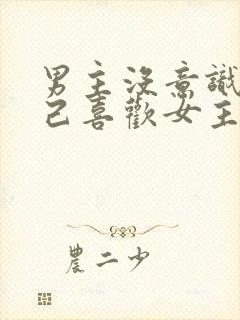 男主沒意識
己喜歡女主
農二少